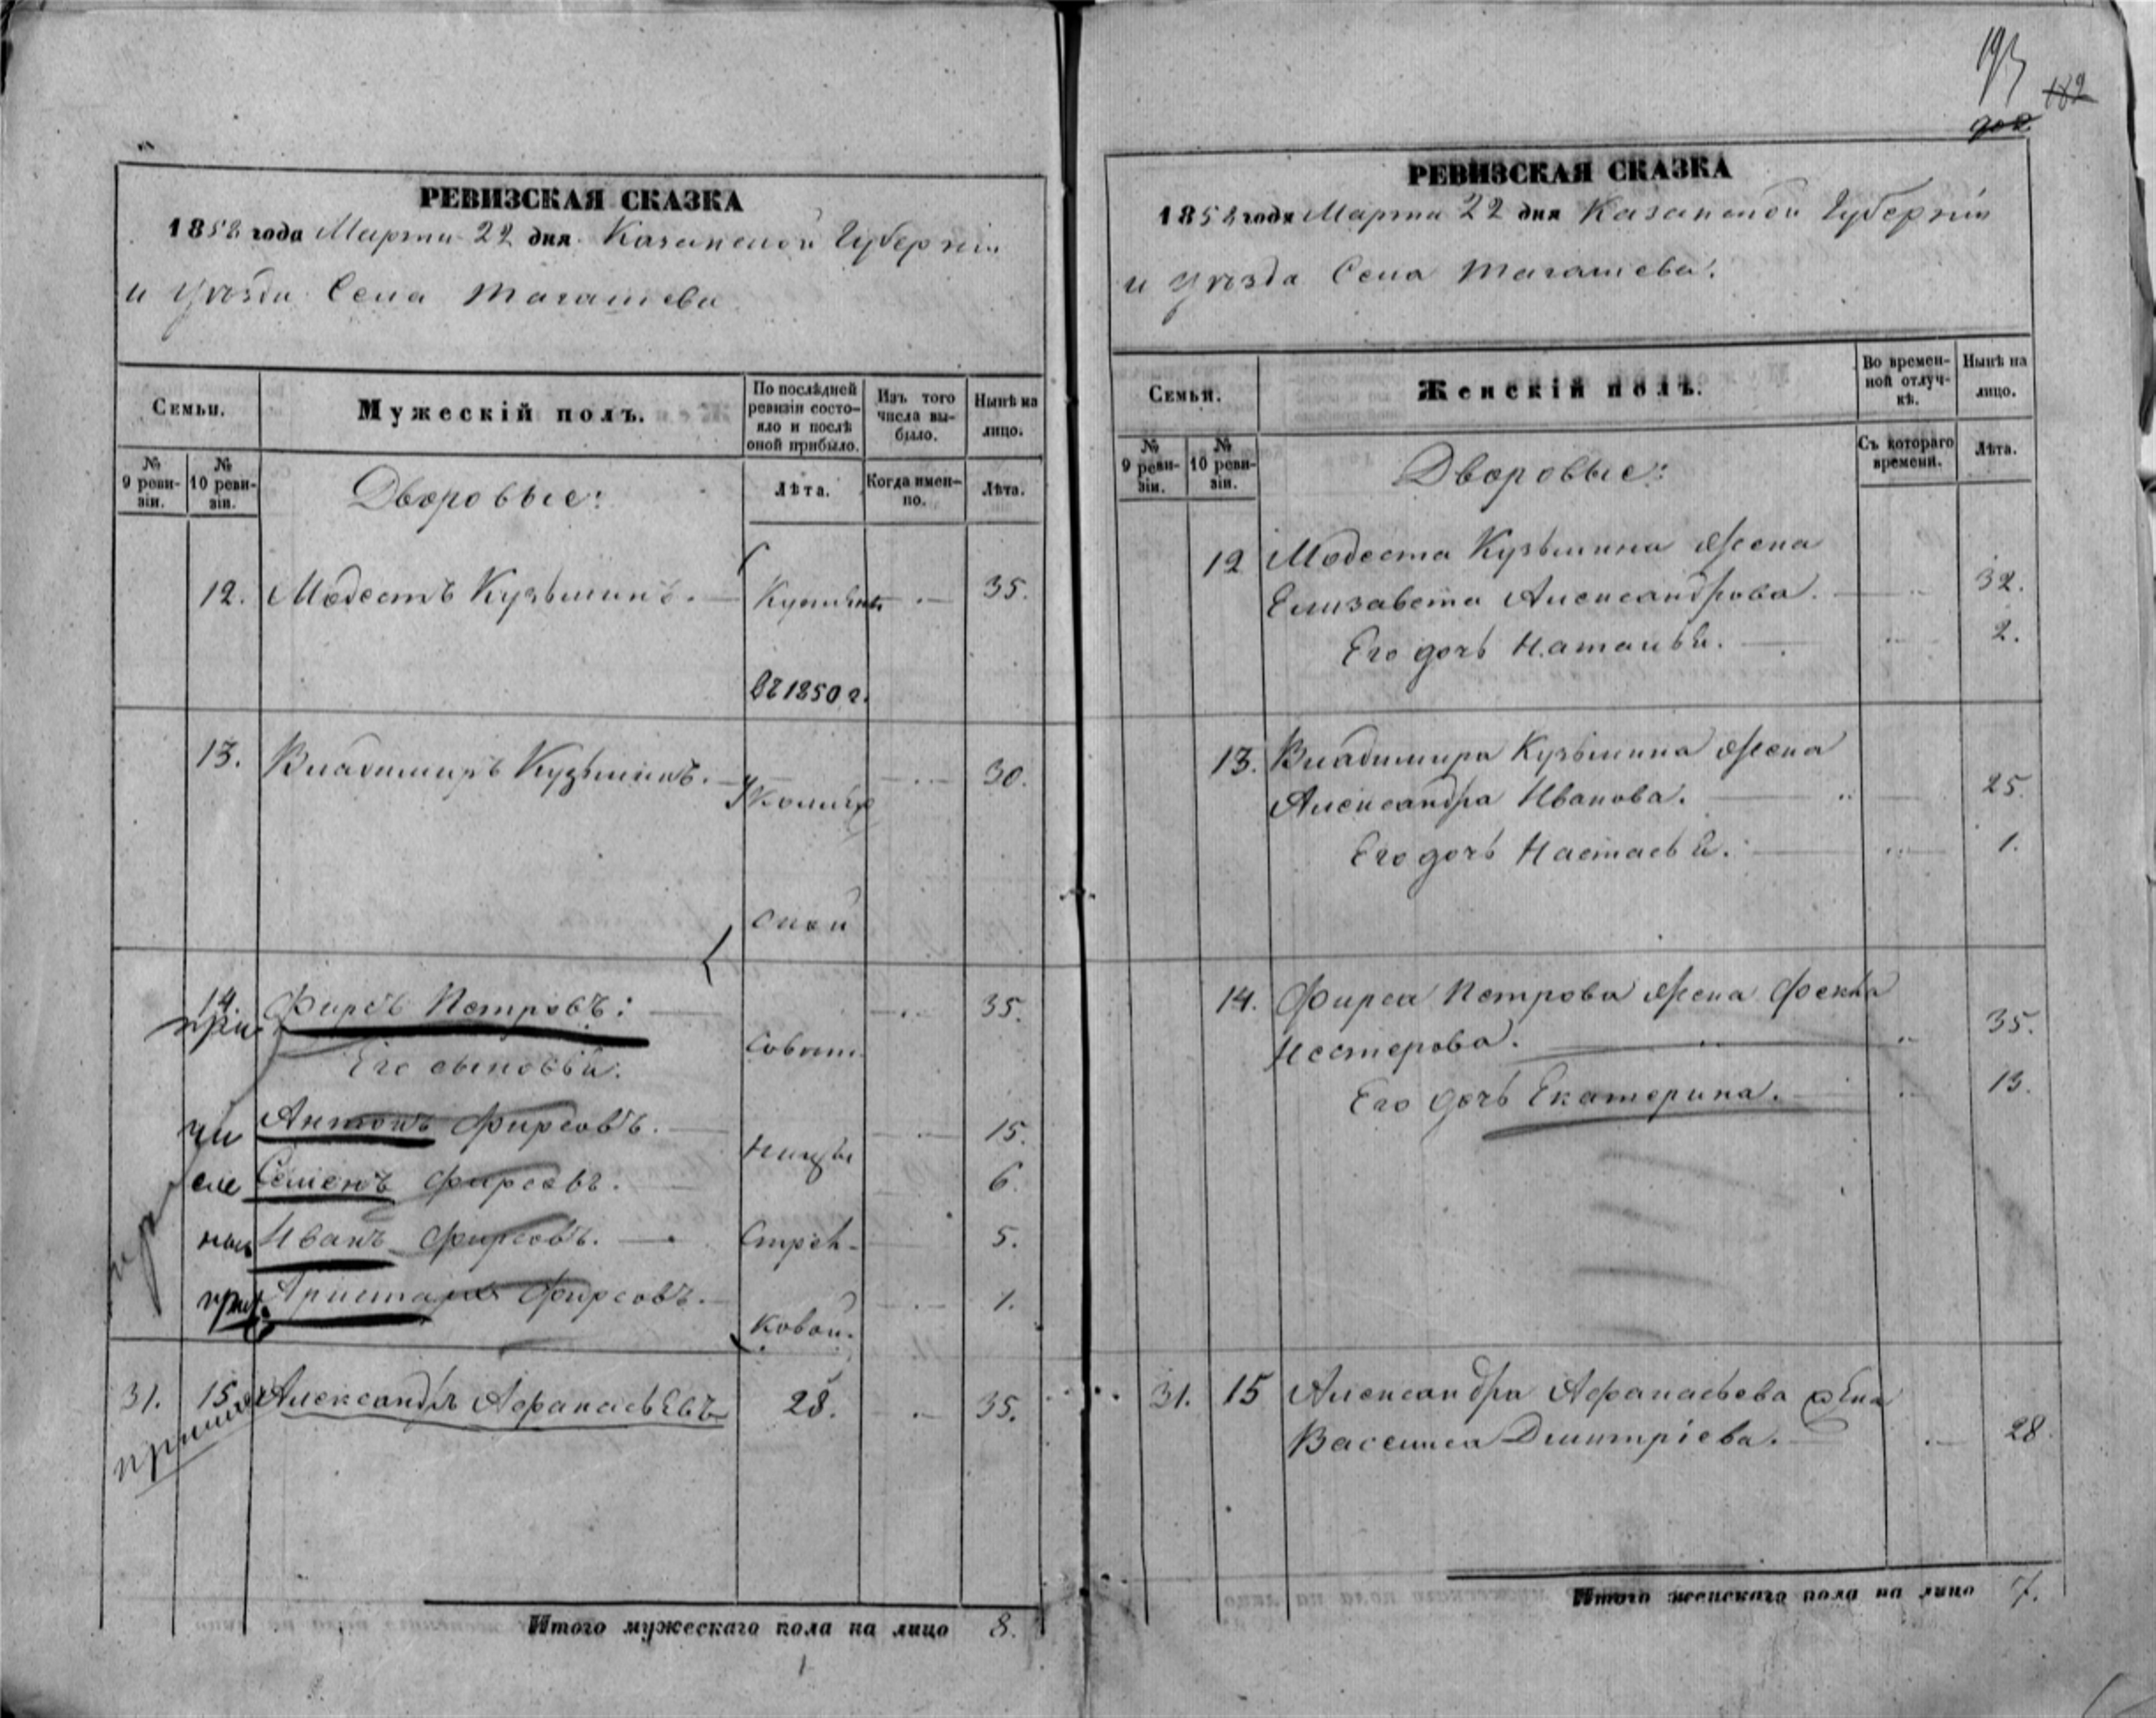 193
182
РЕВИЗСКАЯ СКАЗКА
1858 года Марта 22 дня Казанской Губерніи
и уѣзда Села Тагашева
Семьи.
Мужескій полъ.
По послѣдней ревизіи состояло и послѣ оной прибыло.
Изъ того числа выбыло.
Нынѣ на лицо.
№ 9 ревизіи.
№ 10 ревизіи.
Дворовые:
Лѣта.
Когда именно.
Лѣта.
12. Модестъ Кузьминъ. 35.
Куплены
въ 1850 г.
13. Владимиръ Кузьминъ. 30.
у
ской
14. Фирсъ Петровъ: 35.
Его сыновья.
Антонъ Фирсовъ. 15.
Семенъ Фирсовъ. 6.
Иванъ Фирсовъ. 5.
Фирсовъ. 1.
Совѣт
ницы
Стрѣл-
ковой.
31. 15 Александръ Афанасьевъ 28. 35.
Итого мужескаго пола на лицо 8.
РЕВИЗСКАЯ СКАЗКА
1858 года Марта 22 дня Казанской Губерніи
и уѣзда Села Тагашева.
Семьи.
Женскій полъ.
Во временной отлучкѣ.
Нынѣ на лицо.
№ 9 ревизіи.
№ 10 ревизіи.
Дворовые:
Съ котораго времени.
Лѣта.
12 Модеста Кузьмина жена
Елизавета Александрова. 32.
Его дочь Наталья. 2.
13. Владимира Кузьмина жена
Александра Иванова. 25.
Его дочь Настасья. 1.
14. Фирса Петрова жена Фекла
Нестерова. 35.
Его дочь Екатерина. 13.
31. 15 Александра Афанасьева жена
Василиса Дмитріева. 28
Итого женскаго пола на лицо 7.